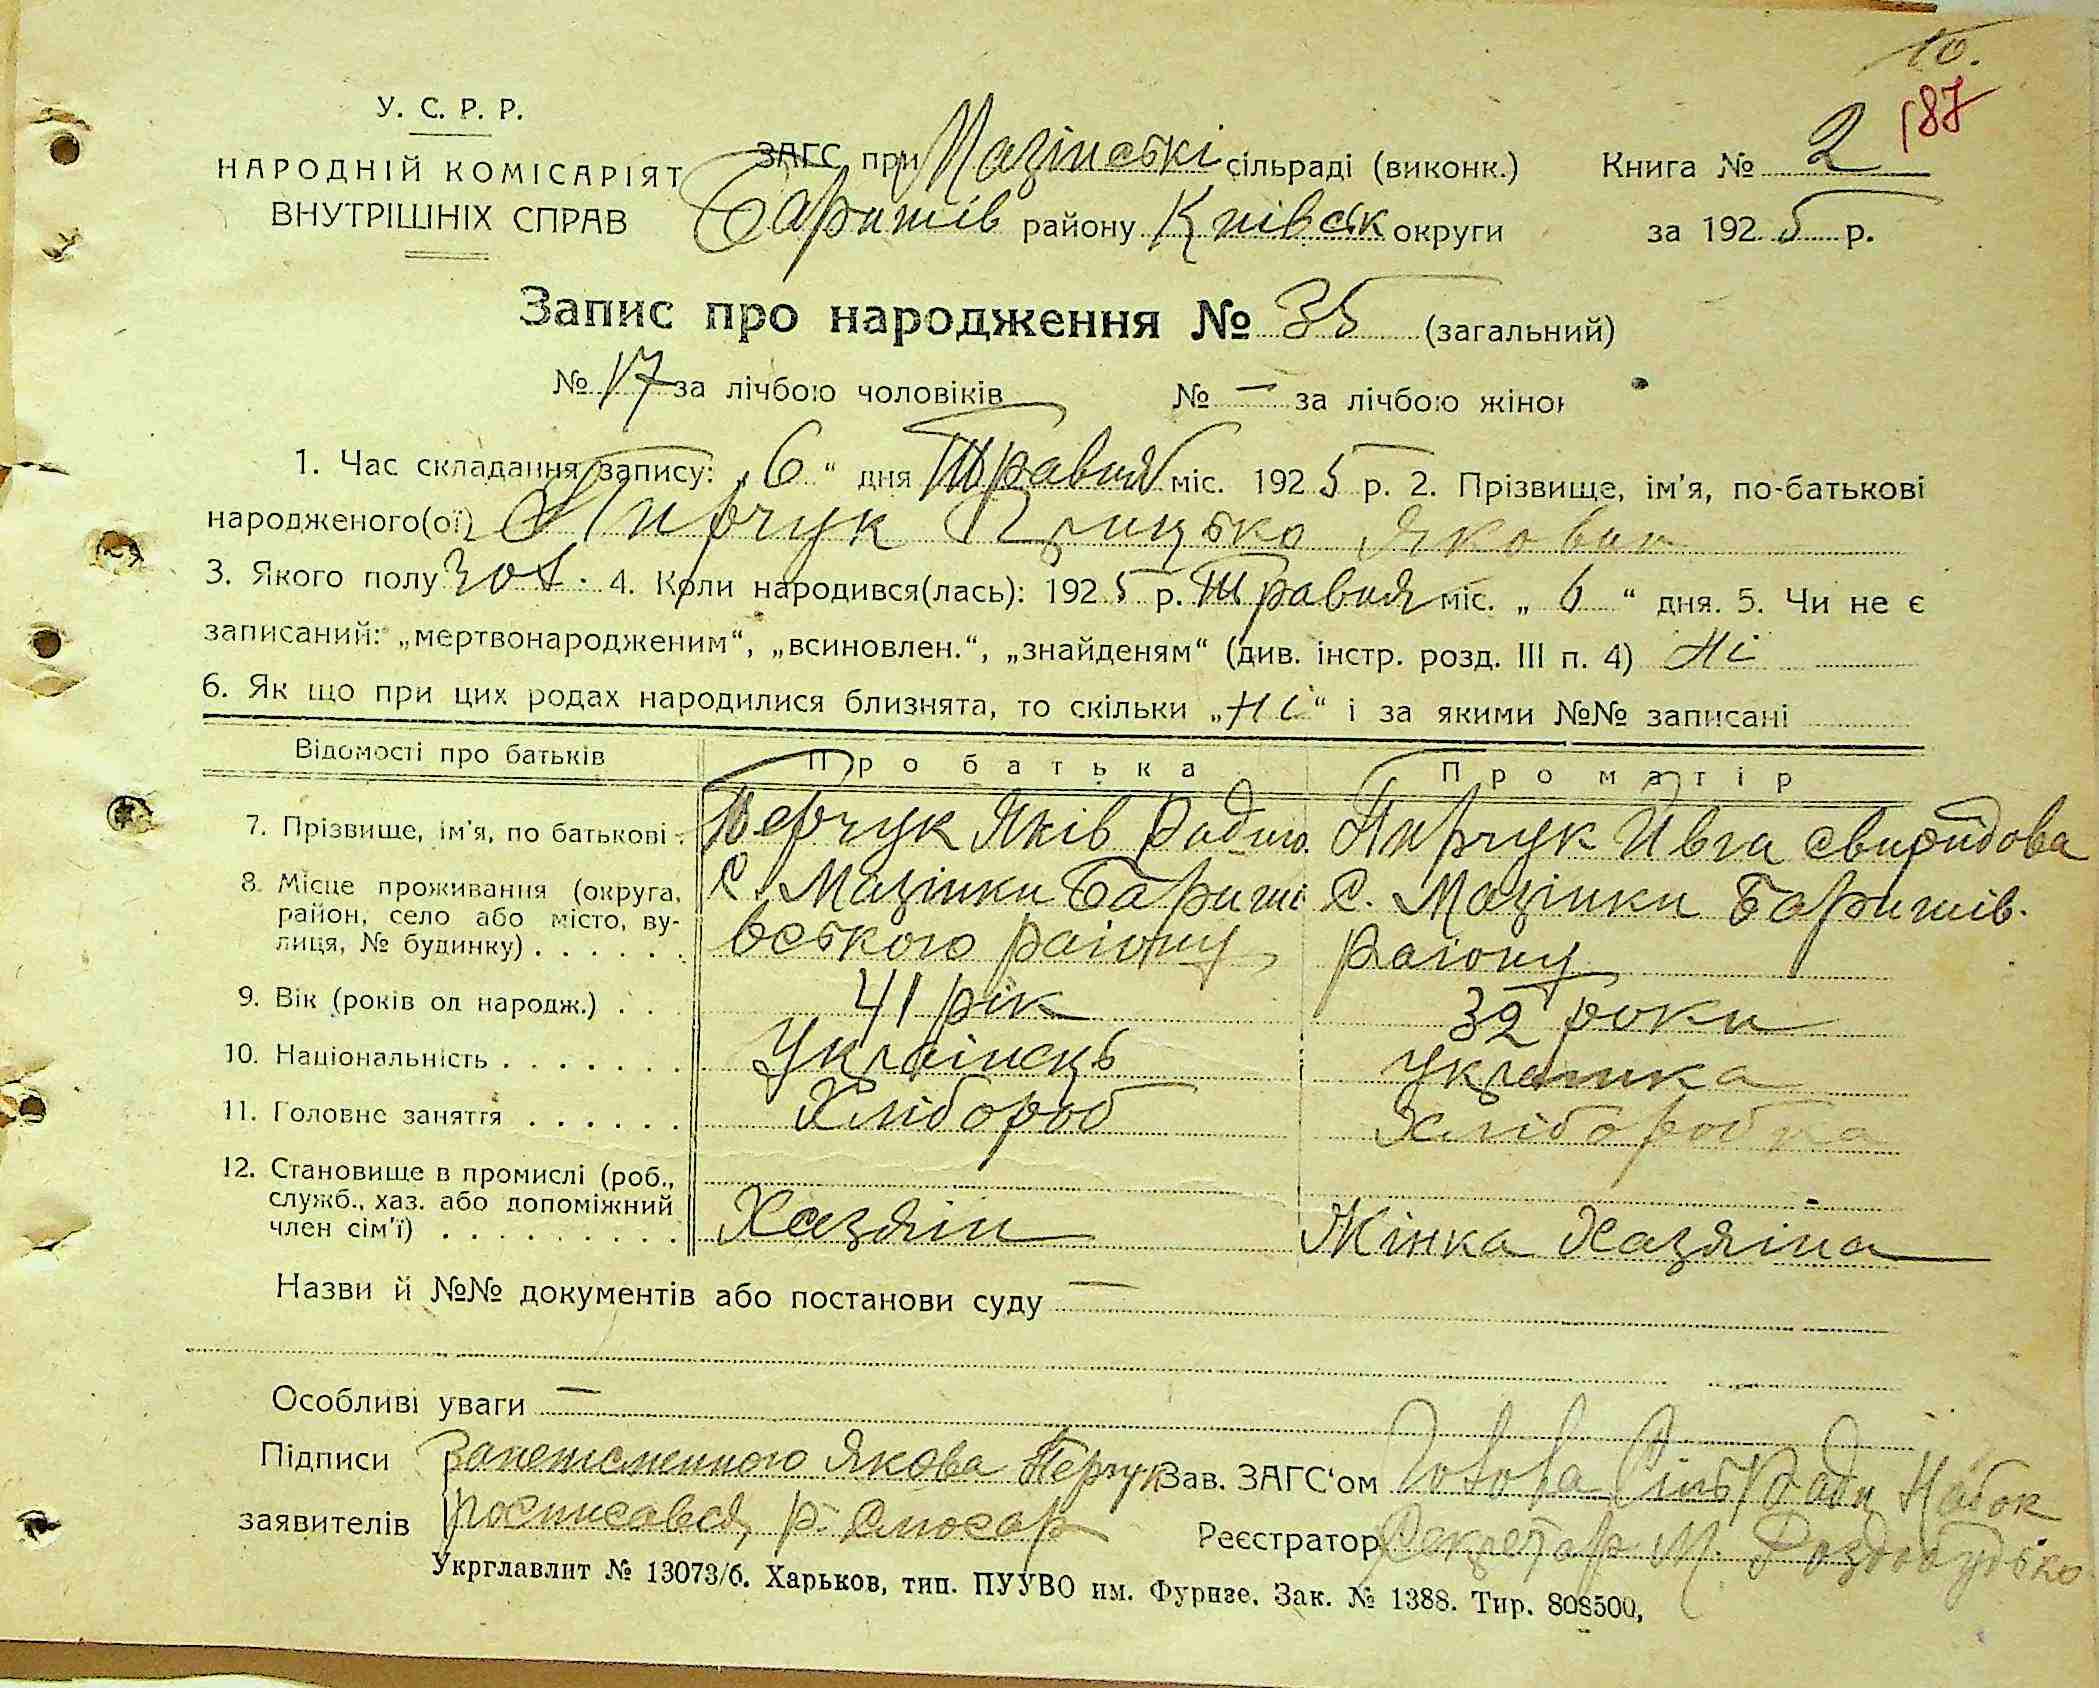 10.
187
У. С. Р. Р.
НАРОДНІЙ КОМІСАРІЯТ
ВНУТРІШНІХ СПРАВ
ЗАГС при Мазінські сільраді (виконк.) Книга № 2
Баришів району Київськ округи за 1925 р.
Запис про народження № 35 (загальний)
№ 17 за лічбою чоловіків № — за лічбою жінок
1. Час складання запису: „6“ дня Травня міс. 1925 р. 2. Прізвище, ім'я, по-батькові
народженого(ої) Пирчук Грицько Якович
3. Якого полу Чол. 4. Коли народився(лась): 1925 р. Травня міс. „6“ дня. 5. Чи не є
записаний: „мертвонародженим“, „всиновлен.“, „знайденям“ (див. інстр. розд. III п. 4) Ні
6. Як що при цих родах народилися близнята, то скільки „Ні“ і за якими №№ записані
Відомості про батьків Про батька Про матір
7. Прізвище, ім'я, по батькові. Перчук Яків Пирчук Ивга Свиридова
8. Місце проживання (округа, район, село або місто, вулиця, № будинку) С. Мазінки Баришівського раіону С. Мазінки Баришів. раіону
9. Вік (років од народж.) 41 рік 32 роки
10. Національність Українець Українка
11. Головне заняття Хлібороб Хліборобка
12. Становище в промислі (роб., служб., хаз. або допоміжний член сім'ї) Хазяін Жінка Хазяіна
Назви й №№ документів або постанови суду —
Особливі уваги —
Підписи Якова Перчук Зав. ЗАГС'ом Голова Сільради Набок
заявителів росписався Р. Слюсар Реєстратор Секретар М. Роздобудько
Укрглавлит № 13073/б. Харьков, тип. ПУУВО им. Фрунзе. Зак. № 1388. Тир. 808500,